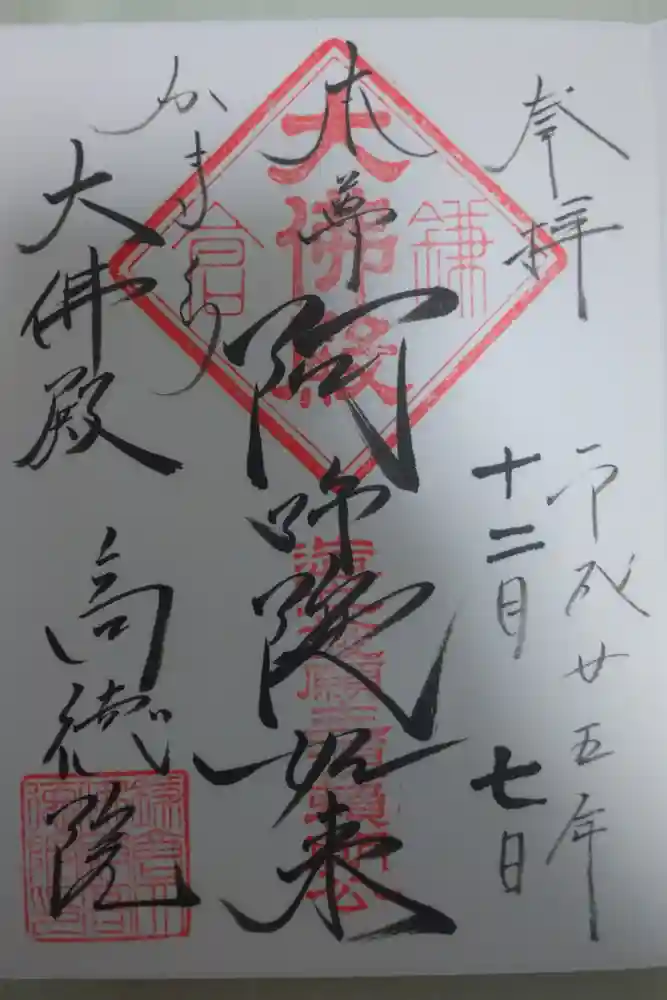 奉拝
平成廿五年
十二月七日
本尊
阿弥陀如来
かまくら
大佛殿
高徳院
大佛殿
鎌倉